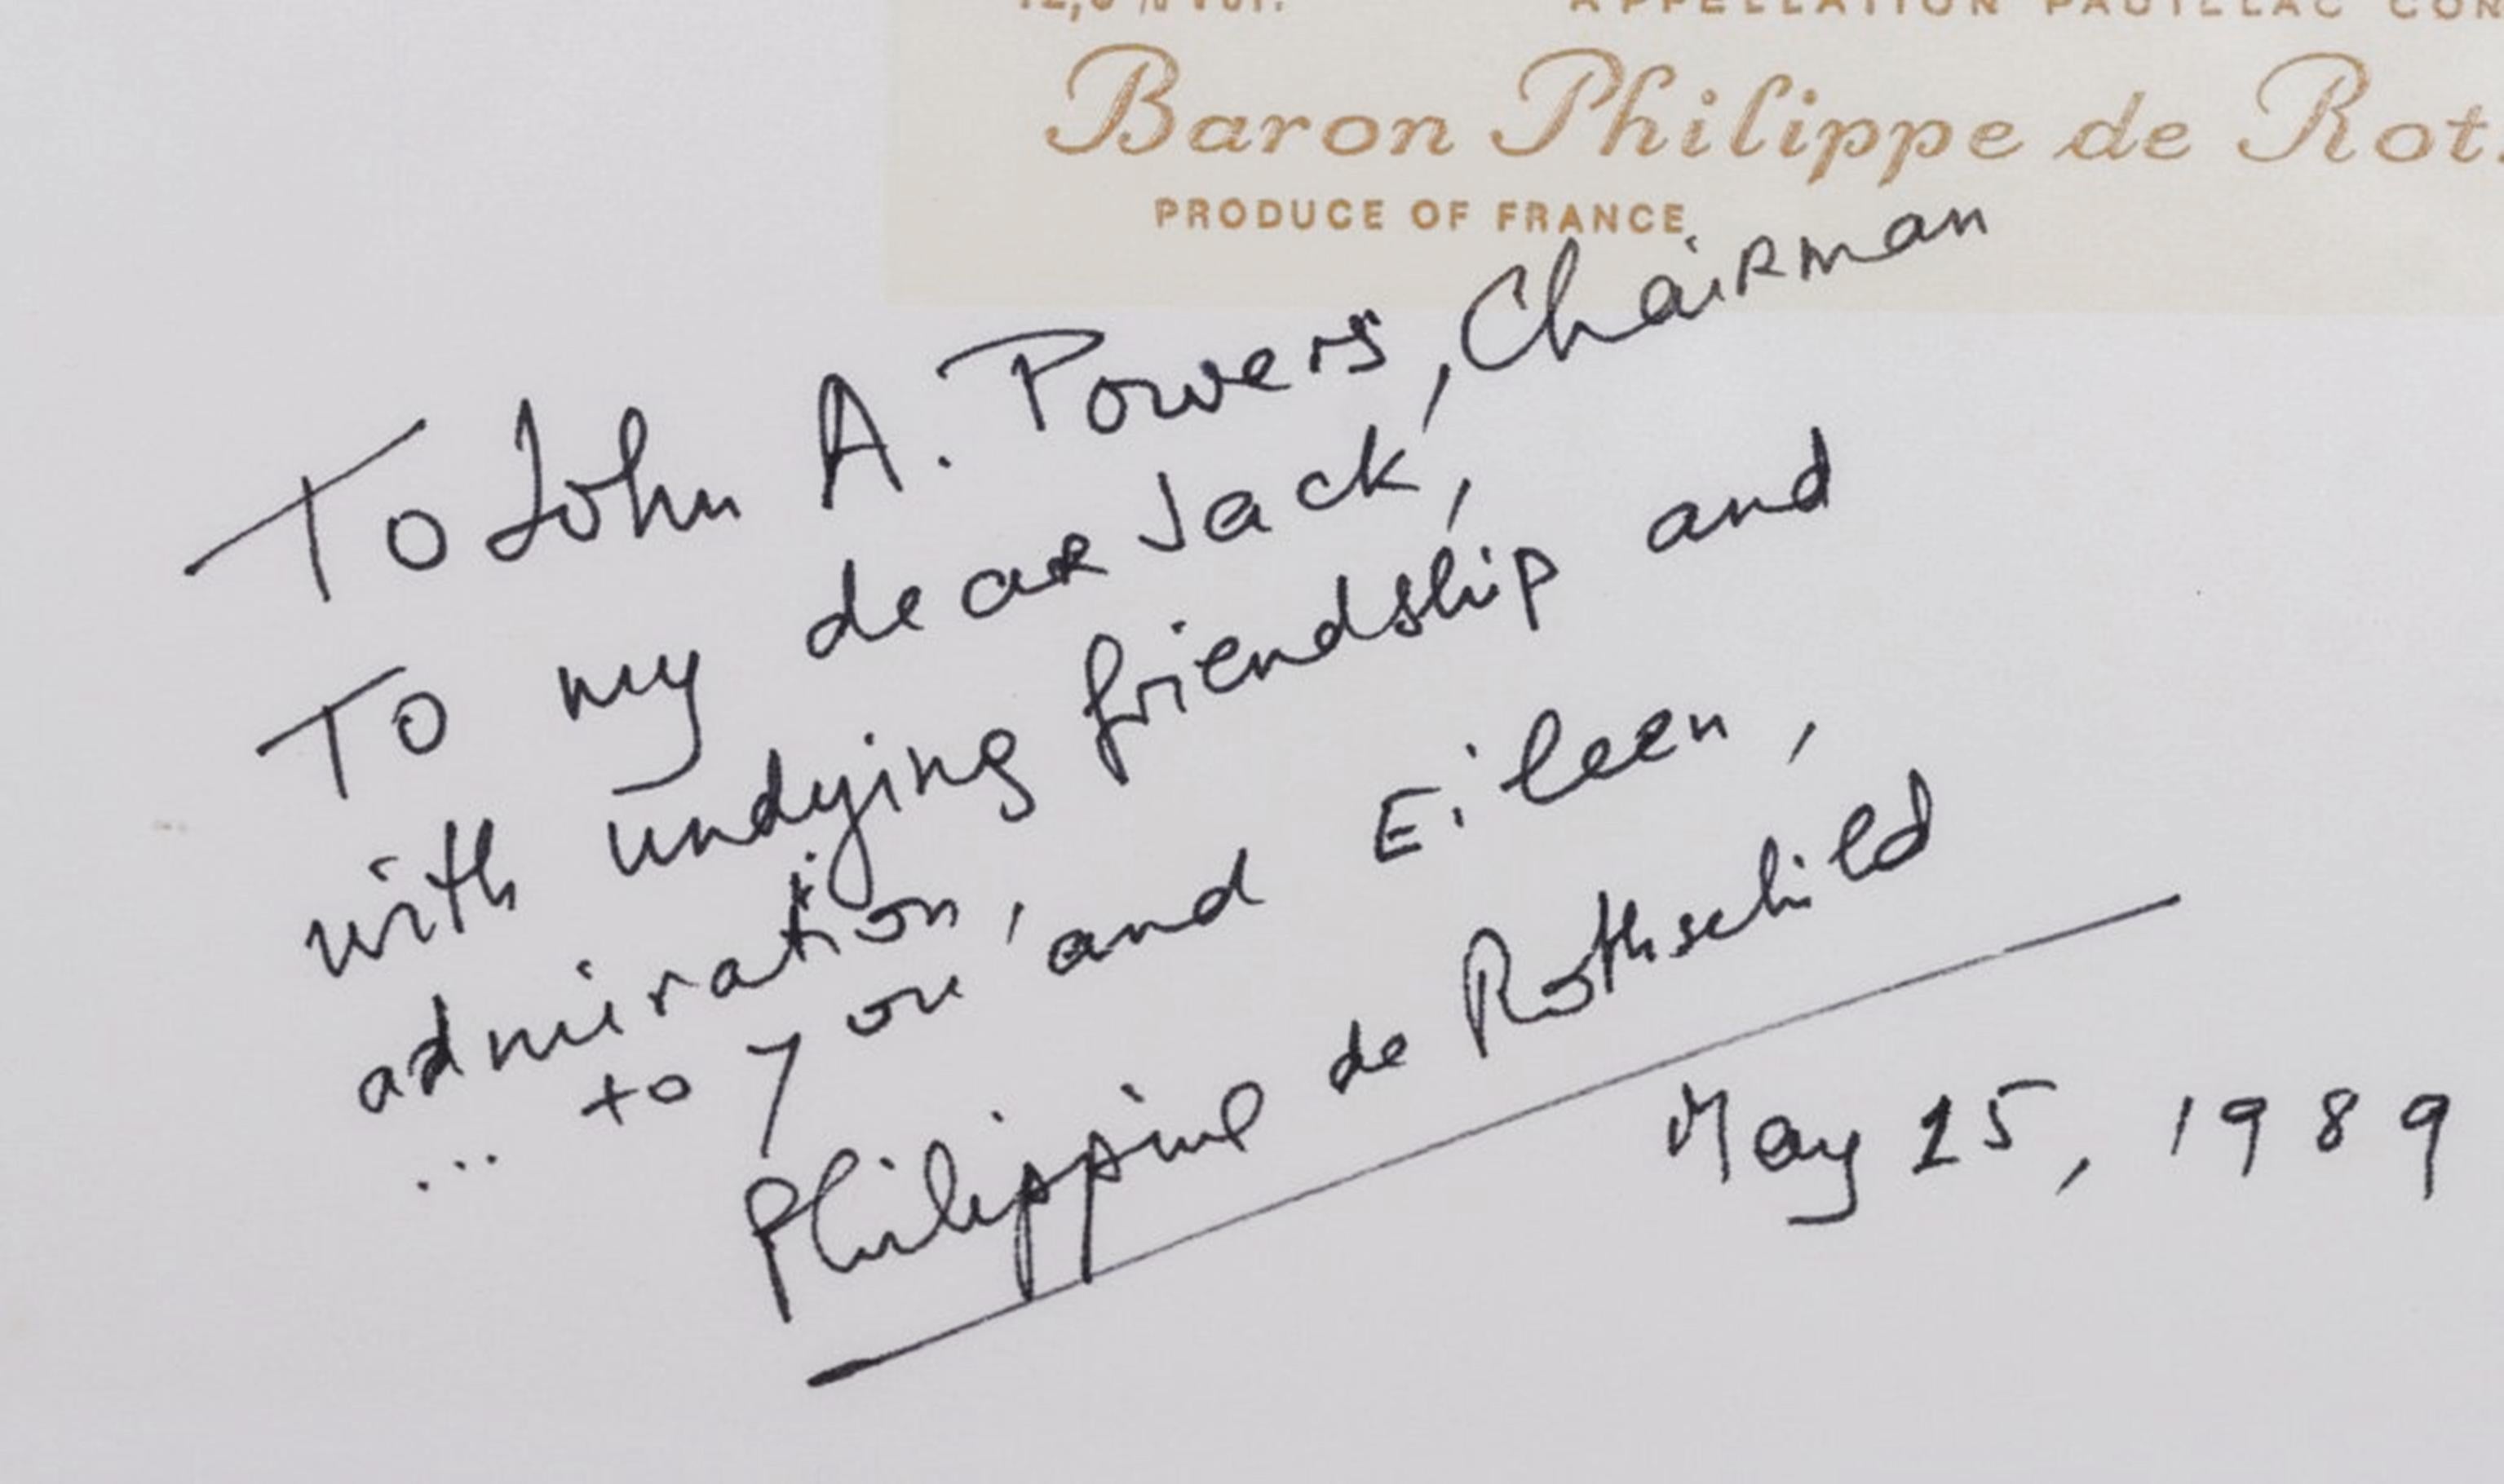 APPELLATION PAUILLAC CON
Baron Philippe de Rot
PRODUCE OF FRANCE
To John A. Powers, Chairman
To my dear Jack,
with undying friendship and
admiration,
... to you and Eileen,
Philippine de Rothschild
May 25, 1989